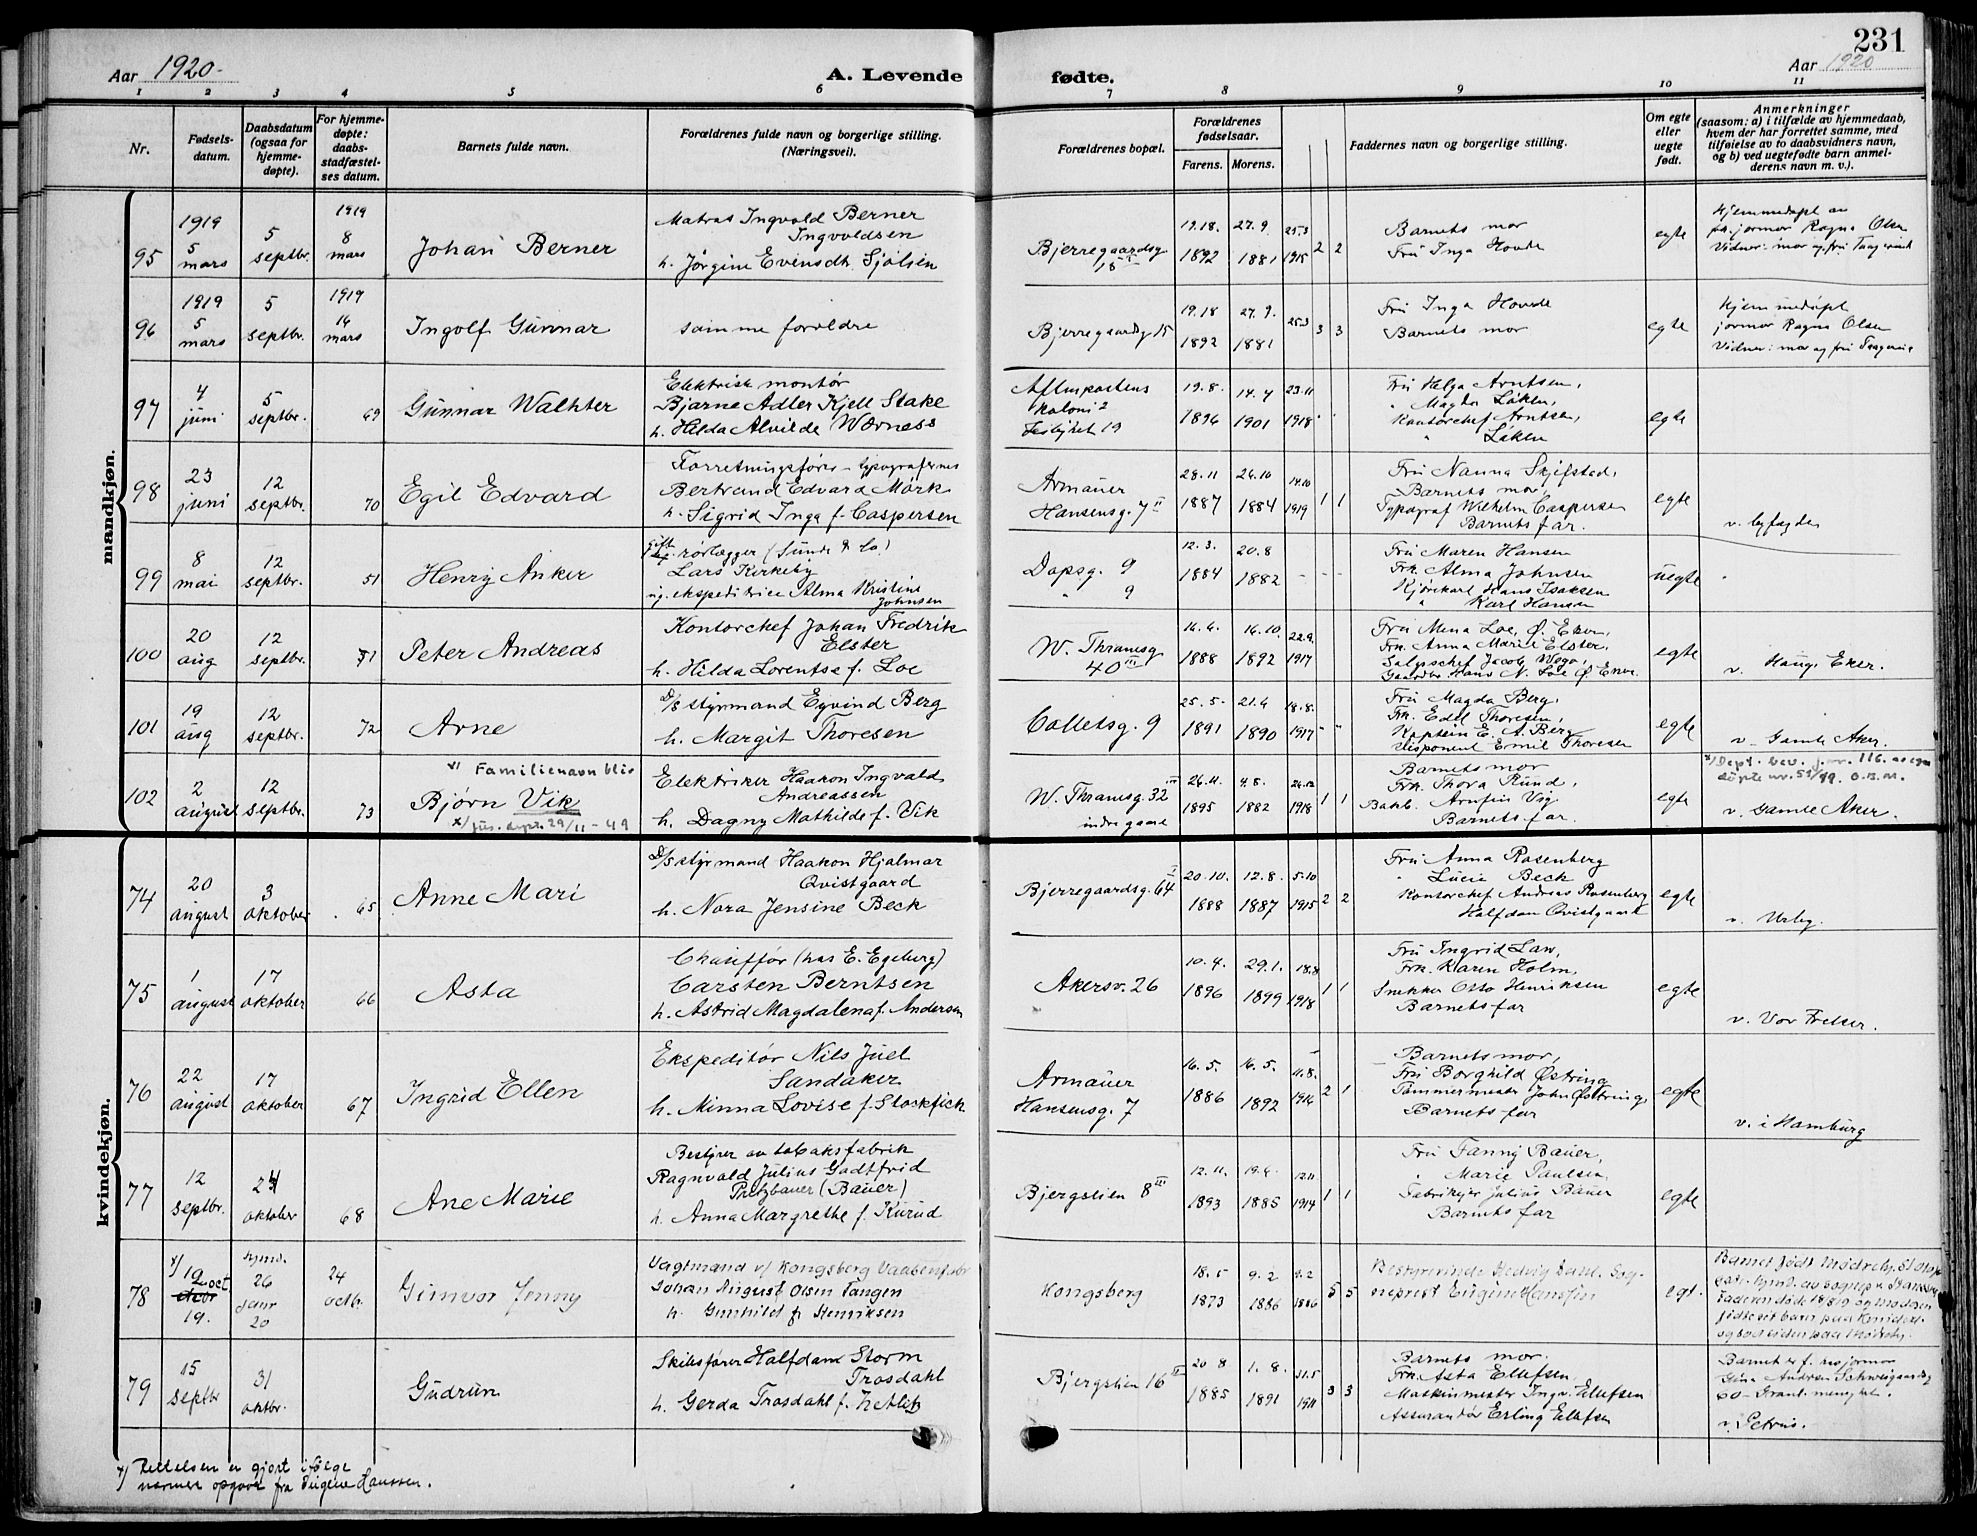 231
Aar 1920.
A. Levende
fødte.
Aar 1920
1 2 3 4 5 6 7 8 9 10 11
Nr.
Fødsels-
datum.
Daabsdatum
(ogsaa for
hjemme-
døpte).
For hjemme-
døpte:
daabs-
stadfæstel-
ses datum.
Barnets fulde navn.
Forældrenes fulde navn og borgerlige stilling.
(Næringsvei).
Forældrenes bopæl.
Forældrenes
fødselsaar.
Farens. Morens.
Faddernes navn og borgerlige stilling.
Om egte
eller
uegte
født.
Anmerkninger
(saasom: a) i tilfælde av hjemmedaab,
hvem der har forrettet samme, med
tilføielse av to daabsvidners navn,
og b) ved uegtefødte barn anmel-
derens navn m. v.).
mandkjøn.
95
1919
5
mars
5
septbr.
1919
8
mars
Johan Berner
Matros Ingvald Berner
Ingvaldsen
h. Jørgine Evensdt. Sjølsen
Bjerregaardsg
15
19.18.
1892
27.9.
1881
25.3
1915
2 2
Barnets mor
Fru Inga Hovde
egte
Hjemmedøpt av
jormor Ragna Olsen
Vidner: mor og fru
96
1919
5
mars
5
septbr.
1919
16
mars
Ingolf Gunnar
samme foreldre
Bjerregaardsg 15
19.18
1892
27.9.
1881
25.3
3 3
Fru Inga Hovde
Barnets mor
egte
Hjemmedøpt
jormor Ragna Olsen
Vidner: mor og fru
97
4
juni
5
septbr.
69
Gunnar Walther
Elektrisk montør
Bjarne Adler Kjell Stake
h. Hilda Alvilde Wærness
Aftenpostens
Koloni 2
19
19.8.
1896
14.4
1901
23.11
1918
Fru Helga Arntsen,
" Magda Løken,
Kontorchef Arntsen,
" Løken
egte
98
23
juni
12
septbr.
70
Egil Edvard
Forretningsfører - typografernes
Bertrand Edvard Mørk
h. Sigrid Inga f. Caspersen
Armauer
Hansensg. 7 II
28.11
1887
26.10
1884
14.10
1919
1 1
Fru Nanna Skjefstad,
Barnets mor,
Typograf Wilhelm Caspersen
Barnets far.
egte
v. byfogden
99
8
mai
12
septbr.
51
Henry Anker
gift rørlægger (Sunde & Co.)
Lars Kirkeby
ug. ekspeditrice Alma Kristine
Johnsen
Dopsg. 9
" 9
12.3.
1884
20.8
1882
Fru Maren Hansen
Frk. Alma Johnsen
Kjørekarl Hans Isaksen
" Karl Hansen
uegte
100
20
aug
12
septbr.
71
Peter Andreas
Kontorchef Johan Fredrik
Elster
h. Hilda Lorentse f. Loe
W. Thranesg
40 III
16.6.
1888
16.10.
1892
22.9.
1917
Fru Mena Loe, Ø. Eker,
Frk. Anna Marie Elster,
Salgschef Jacob
Gaardbr. Hans N. Loe Ø. Eker.
egte
v. Haug, Eker.
101
19
aug
12
septbr.
72
Arne
D/S styrmand Eyvind Berg
h. Margit Thoresen
Colletsg. 9
25.5.
1891
21.4
1890
18.8.
1917
Fru Magda Berg,
Frk. Edel Thoresen,
Kaptein E. A. Berg
Disponent Emil Thoresen
egte
v. Gamle Aker.
102
2
august
12
septbr.
73
x/ Familienavn blir
Bjørn Vik
x/ jus. dept. 29/11 - 49
Elektriker Haakon Ingvald
Andreassen
h. Dagny Mathilde f. Vik
W. Thranesg. 32 III
indre gaard
26.11.
1895
4.8.
1882
26.12
1918
1 1
Barnets mor
Frk. Thora Rund,
Arnfin Vig
Barnets far.
egte
x/ Dept. bev. j.nr. 116.
døpte nr. 51/49.
v. Gamle Aker.
kvindekjøn.
74
20
august
3
oktober
65
Anne Mari
D/S styrmand Haakon Hjalmar
Qvistgaard
h. Nora Jensine Beck
Bjerregaardsg. 64 I
20.10.
1888
12.8.
1887
5.10
1915
2 2
Fru Anna Rosenberg
" Lucie Beck
Kontorchef Andreas Rosenberg
Halfdan Qvistgaard
egte
75
1
august
17
oktober
66
Asta
Chauffør (hos E. Egeberg)
Carsten Berntsen
h. Astrid Magdalena f. Andersen
Akersv. 26
10.4.
1896
29.1.
1899
18.8
1918
1 1
Fru Ingrid Law,
Frk. Karen Holm,
Snekker Otto Henriksen
Barnets far
egte
v. Vor Frelser.
76
22
august
17
oktober
67
Ingrid Ellen
Ekspeditør Nils Juel
Sandaker
h. Minna Lovise f. Stockfisch
Armauer
Hansensg. 7
16.5.
1886
16.5.
1892
11.8.
1914
2 1
Barnets mor,
Fru Borghild Østring
Tømmermester John Østring,
Barnets far
egte
v. i Hamburg
77
12
septbr.
24
oktober
68
Ane Marie
Bestyrer av tobaksfabrik
Ragnvald Julius Godtfrid
Pretzbauer (Bauer)
h. Anna Margrethe f. Kurud
Bjergslien 8 III
12.11.
1893
19.4.
1885
12.11
1914
1 1
Fru Fanny Bauer,
" Marie Paulsen
Fabrikejer Julius Bauer
Barnets far
egte
78
x/ 19
oct
19.
hjmd.
26
janr
20
24
octbr.
Gunvor Jenny
Vagtmand v/ Kongsberg Vaabenfabr
Johan August Olsen Tangen
h. Gunhild f. Henriksen
Kongsberg
18.5
1873
9.2
1886
1886
5 5
Bestyrerinde Hedvig Dahl. Sog-
neprest Eugene Hanssen
egt.
Barnet født Mødrehj.
79
15
septbr
31
oktbr.
Gudrun
Skibsfører Halfdan Storm
Trosdahl
h. Gerda Trosdahl f. Zetlitz
Bjergslien 16 II
20.8
1885
1.8.
1891
31.5
1911
3 3
Barnets mor.
Frk. Asta Ellefsen
Maskinmester Ingv. Ellefsen
Assurandør Erling Ellefsen
egte
Barnet er f. hos jormor
Gina Andresen Schweigaardsg
60 - Grønl. menighet.
v. Petrus.
x/ Rettelsen er gjort i følge
nærmere opgave fra Eugene Hanssen.